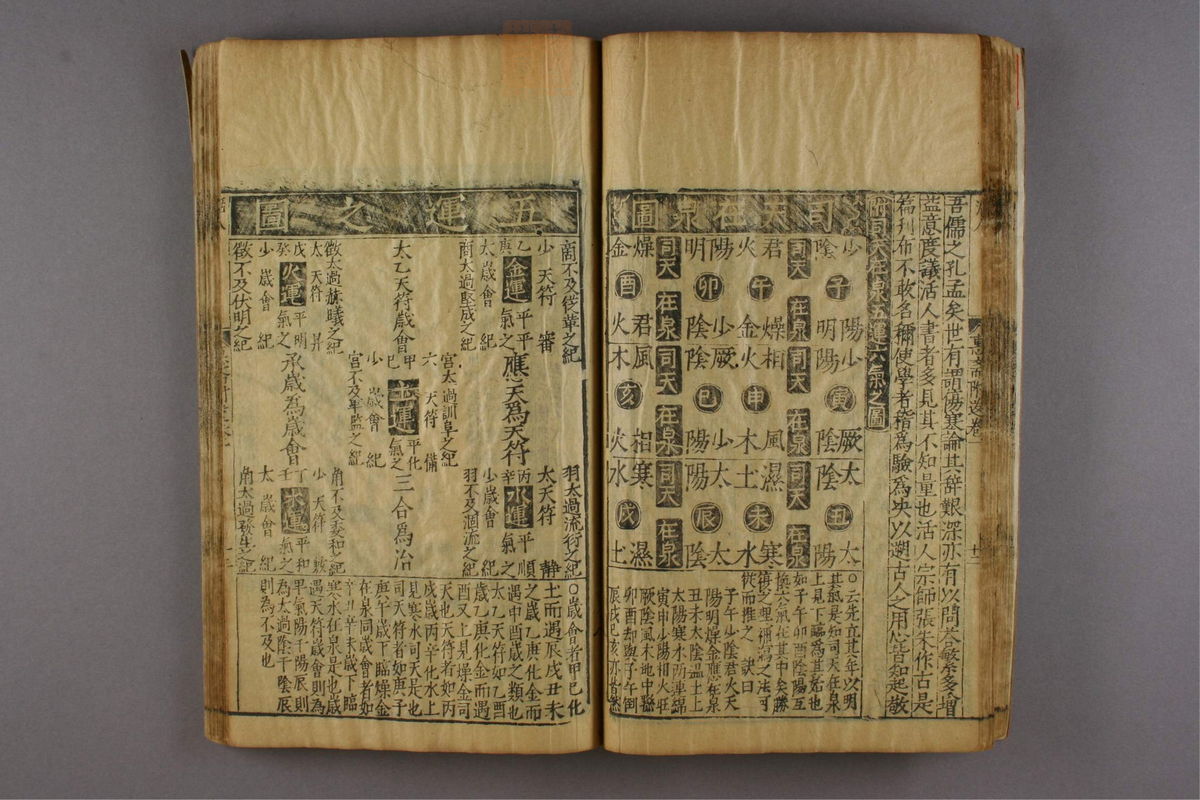 吾儒之孔孟矣世有謂傷寒論其辭艱深亦有以問答繁多增
益意度議活人書者多見其不知量也活人宗師張朱作古是
篇刊布不敢名稱使學者稽爲驗爲決以遡古人之用心皆知起敬
附司天在泉五運六氣之圖
司天在泉圖
少陰 子 陽明
司天 在泉
君火 午 燥金
陽明 卯 少陰
司天 在泉
燥金 酉 君火
少陽 寅 厥陰
司天 在泉
相火 申 風木
厥陰 巳 少陽
司天 在泉
風木 亥 相火
太陰 丑 太陽
司天 在泉
濕土 未 寒水
太陽 辰 太陰
司天 在泉
寒水 戌 濕土
○云先立其年以明
其氣是知司天在泉
上見下臨爲其始也
如子午卯酉陰陽互
換六氣在其中矣勝
復之理禍瀉之法可
從而推之 訣曰
子午少陰君火天
陽明燥金應在泉
丑未太陰濕土上
太陽寒水雨連綿
寅申少陽相火旺
厥陰風木地中聯
卯酉却與子午倒
辰戌巳亥亦皆然
五運之圖
商不及從革之紀
少 天符 審
乙 金運 平
庚 氣之
太 歲會 紀
商太過堅成之紀
應天爲天符
羽太過流衍之紀
太 天符 靜
丙 水運 平順
辛 氣之
少 歲會 紀
羽不及涸流之紀
太乙天符歲會
宮太過訓阜之紀
六 天符 備
甲 土運 平化
巳 氣之
少 歲會 紀
宮不及卑監之紀
三合爲治
徵太過赫曦之紀
太 天符 昇
戊 火運 平明
癸 氣之
少 歲會 紀
徵不及伏明之紀
承歲爲歲會
角不及委和之紀
少 天符 敷
丁 木運 平和
壬 氣之
太 歲會 紀
角太過發生之紀
○歲會者甲巳化
土而遇辰戌丑未
之歲乙庚化金而
遇申酉歲之類也
太乙天符如乙酉
歲乙庚化金而遇
酉又上見燥金司
天也天符者如丙
戌歲丙辛化水上
見寒水司天是也
司天符者如庚子
庚午歲下臨燥金
在泉同歲會者如
辛丑辛未歲下臨
寒水在泉是也歲
遇天符歲會則爲
平氣陽干陽辰則
爲太過陰干陰辰
則爲不及也